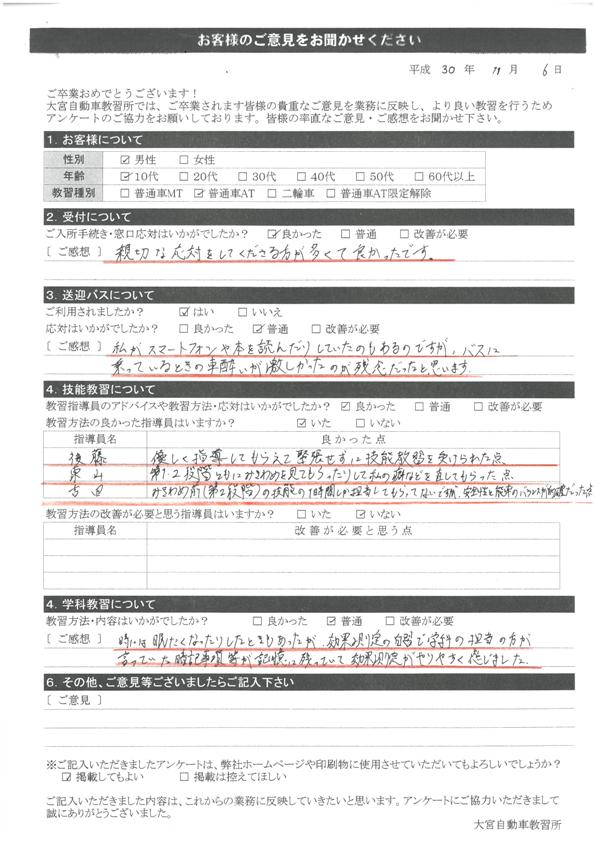 お客様のご意見をお聞かせください
平成 30 年 11 月 6 日
ご卒業おめでとうございます！
大宮自動車教習所では、ご卒業されます皆様の貴重なご意見を業務に反映し、より良い教習を行うため
アンケートのご協力をお願いしております。皆様の率直なご意見・ご感想をお聞かせ下さい。
1. お客様について
性別 ☑ 男性 □ 女性
年齢 ☑ 10代 □ 20代 □ 30代 □ 40代 □ 50代 □ 60代以上
教習種別 □ 普通車MT ☑ 普通車AT □ 二輪車 □ 普通車AT限定解除
2. 受付について
ご入所手続き・窓口応対はいかがでしたか？ ☑ 良かった □ 普通 □ 改善が必要
[ ご感想 ] 親切な応対をしてくださる方が多くて良かったです。
3. 送迎バスについて
ご利用されましたか？ ☑ はい □ いいえ
応対はいかがでしたか？ □ 良かった ☑ 普通 □ 改善が必要
[ ご感想 ] 私がスマートフォンや本を読んだりしていたのもあるのですが、バスに
乗っているときの車酔いが激しかったのが残念だったと思います。
4. 技能教習について
教習指導員のアドバイスや教習方法・応対はいかがでしたか？ ☑ 良かった □ 普通 □ 改善が必要
教習方法の良かった指導員はいますか？ ☑ いた □ いない
指導員名 良かった点
後藤 優しく指導してもらえて緊張せずに技能教習を受けられた点
東山 第1・2段階ともにみきわめを見てもらったりして私の癖などを直してもらった点
吉田 みきわめ前(第2段階)の技能の1時間しか担当してもらってないですが、安全性と能率のバランスが的確だった点
教習方法の改善が必要と思う指導員はいますか？ □ いた ☑ いない
指導員名 改善が必要と思う点
4. 学科教習について
教習方法・内容はいかがでしたか？ □ 良かった ☑ 普通 □ 改善が必要
[ ご感想 ] 時には眠たくなったりしたときもあったが、効果測定の自習で学科の担当の方が
言っていた暗記事項等が記憶に残っていて効果測定がやりやすく感じました。
6. その他、ご意見等ございましたらご記入下さい
[ ご意見 ]
※ご記入いただきましたアンケートは、弊社ホームページや印刷物に使用させていただいてもよろしいでしょうか？
☑ 掲載してもよい □ 掲載は控えてほしい
ご記入いただきました内容は、これからの業務に反映していきたいと思います。アンケートにご協力いただきまして
誠にありがとうございました。
大宮自動車教習所